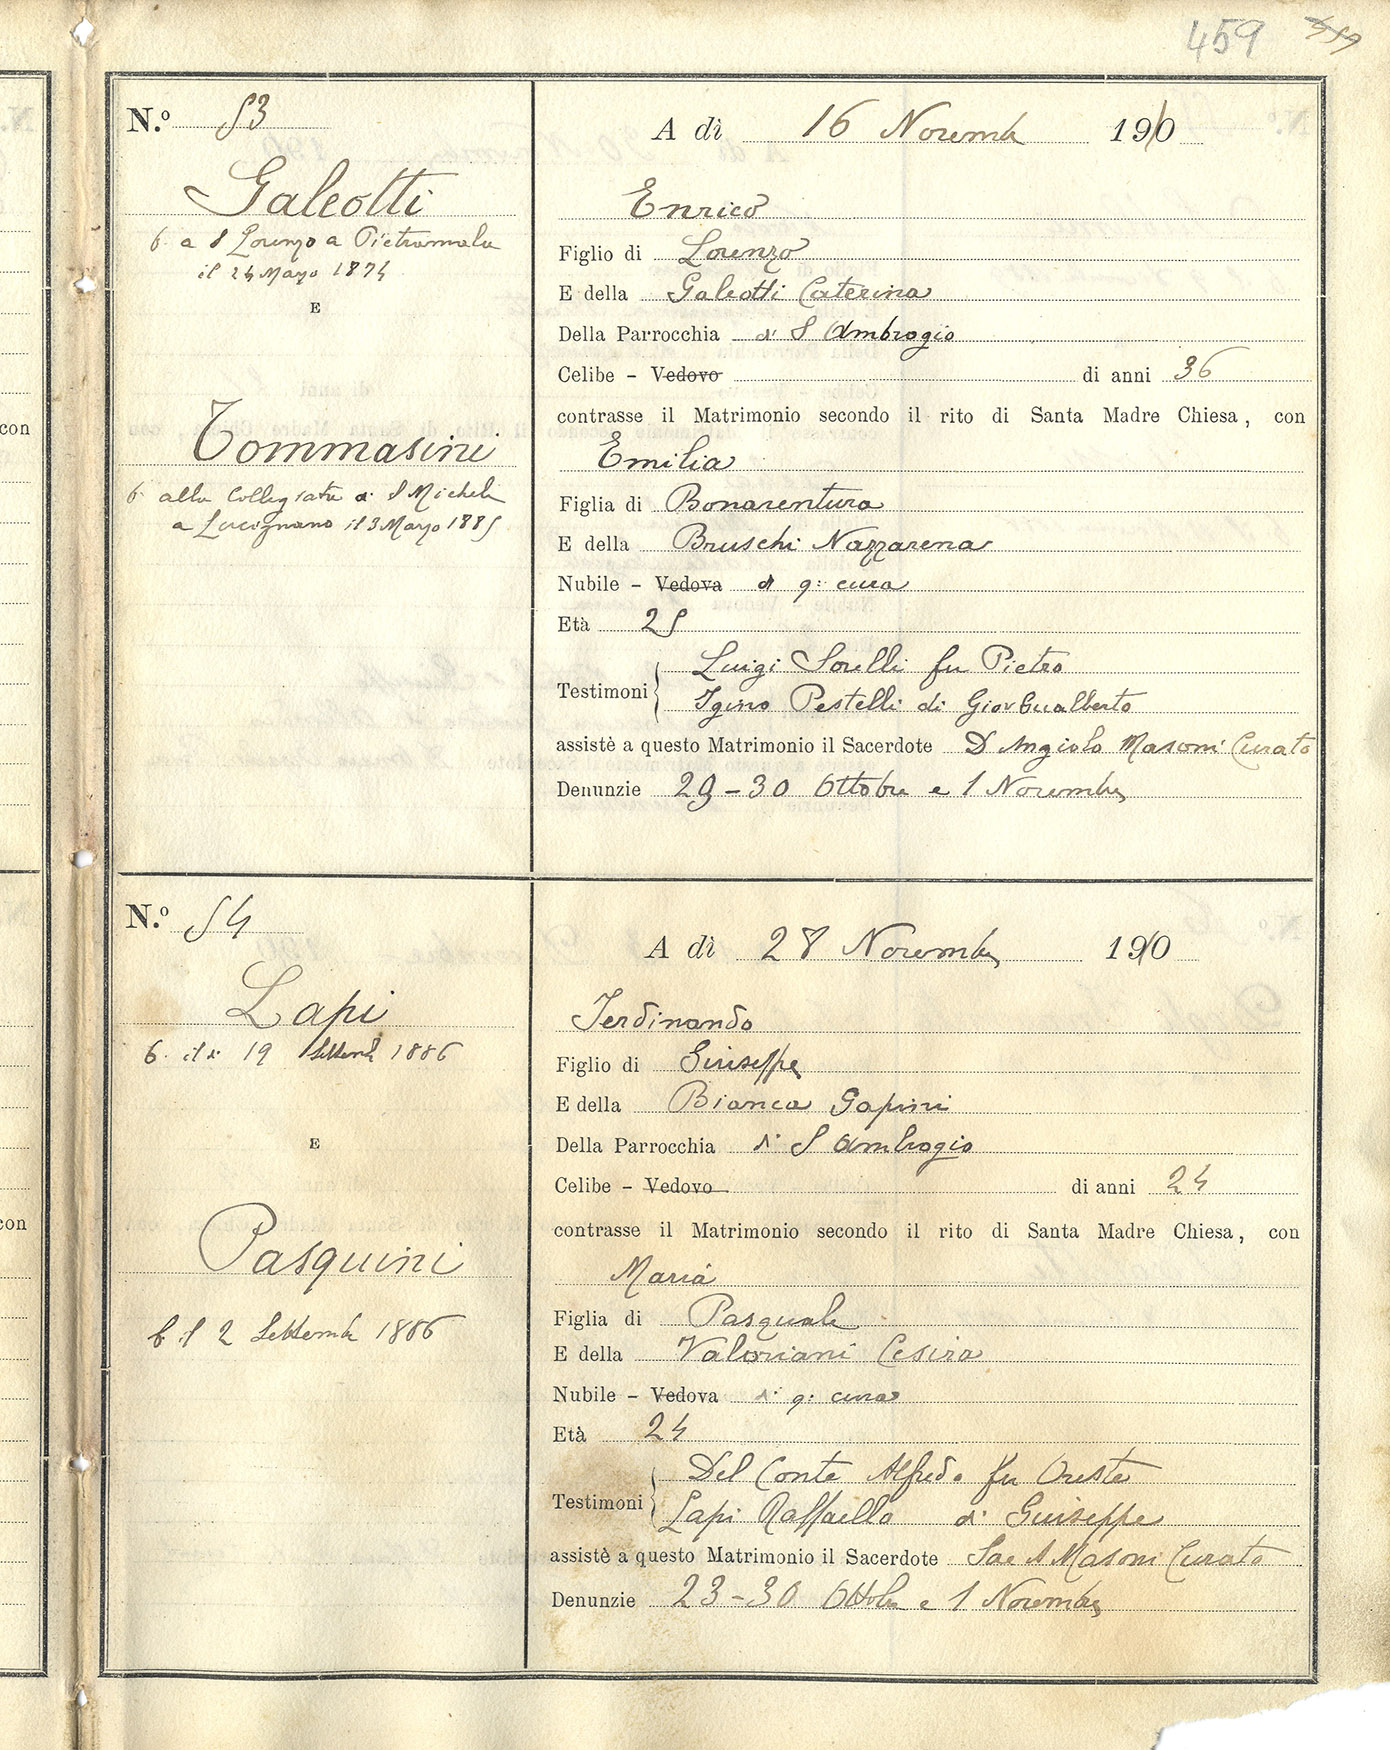 459
N.º 53
A dì 16 Novemb 1910
Galeotti
Enrico
b. a S Lorenzo a Pietramala
il 24 Marzo 1874
Figlio di Lorenzo
E
E della Galeotti Caterina
Della Parrocchia di S Ambrogio
Celibe - Vedovo di anni 36
contrasse il Matrimonio secondo il rito di Santa Madre Chiesa, con
Tommasini
Emilia
b. alla Collegiata di S Michele
a Lucignano il 3 Marzo 1885
Figlia di Bonaventura
E della Bruschi Nazzarena
Nubile - Vedova di q: cura
Età 25
Testimoni Luigi Sorelli fu Pietro
Igino Pestelli di Giov Gualberto
assistè a questo Matrimonio il Sacerdote D Angiolo Masoni Curato
Denunzie 29-30 Ottobre e 1 Novembre
N.º 54
A dì 28 Novembre 1910
Lapi
Ferdinando
b. il dì 19 Settemb 1886
Figlio di Giuseppe
E della Bianca Papini
E
Della Parrocchia di S Ambrogio
Celibe - Vedovo di anni 24
contrasse il Matrimonio secondo il rito di Santa Madre Chiesa, con
Pasquini
Maria
b il 2 Settemb 1886
Figlia di Pasquale
E della Valoriani Cesira
Nubile - Vedova di q: cura
Età 24
Testimoni Del Conte Alfredo fu Oreste
Lapi Raffaello di Giuseppe
assistè a questo Matrimonio il Sacerdote Sac A Masoni Curato
Denunzie 23-30 Ottobre e 1 Novembre
con
con